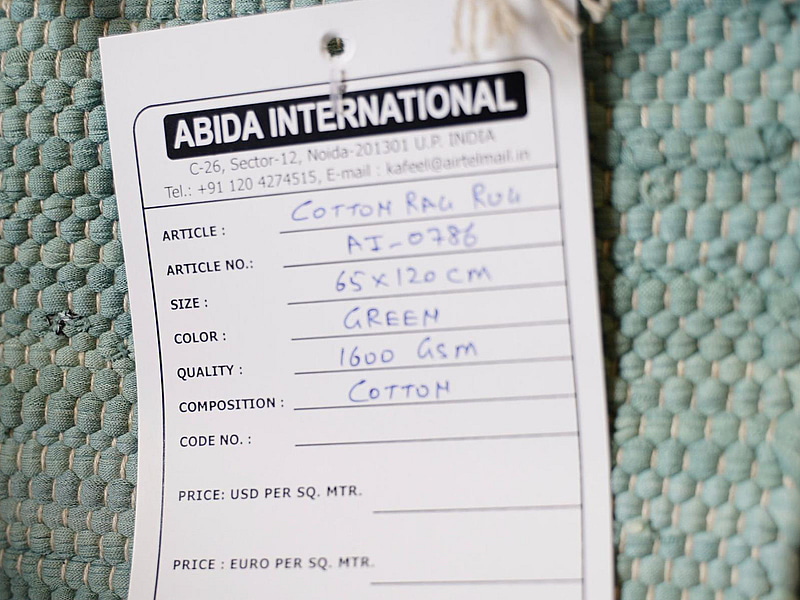 ABIDA INTERNATIONAL
C-26, Sector-12, Noida-201301 U.P. INDIA
Tel.: +91 120 4274515, E-mail : kafeel@airtelmail.in
ARTICLE : COTTON RAG RUG
ARTICLE NO.: AI-0786
SIZE : 65 x 120 cm
COLOR : GREEN
QUALITY : 1600 GSM
COMPOSITION : COTTON
CODE NO. :
PRICE: USD PER SQ. MTR.
PRICE : EURO PER SQ. MTR.